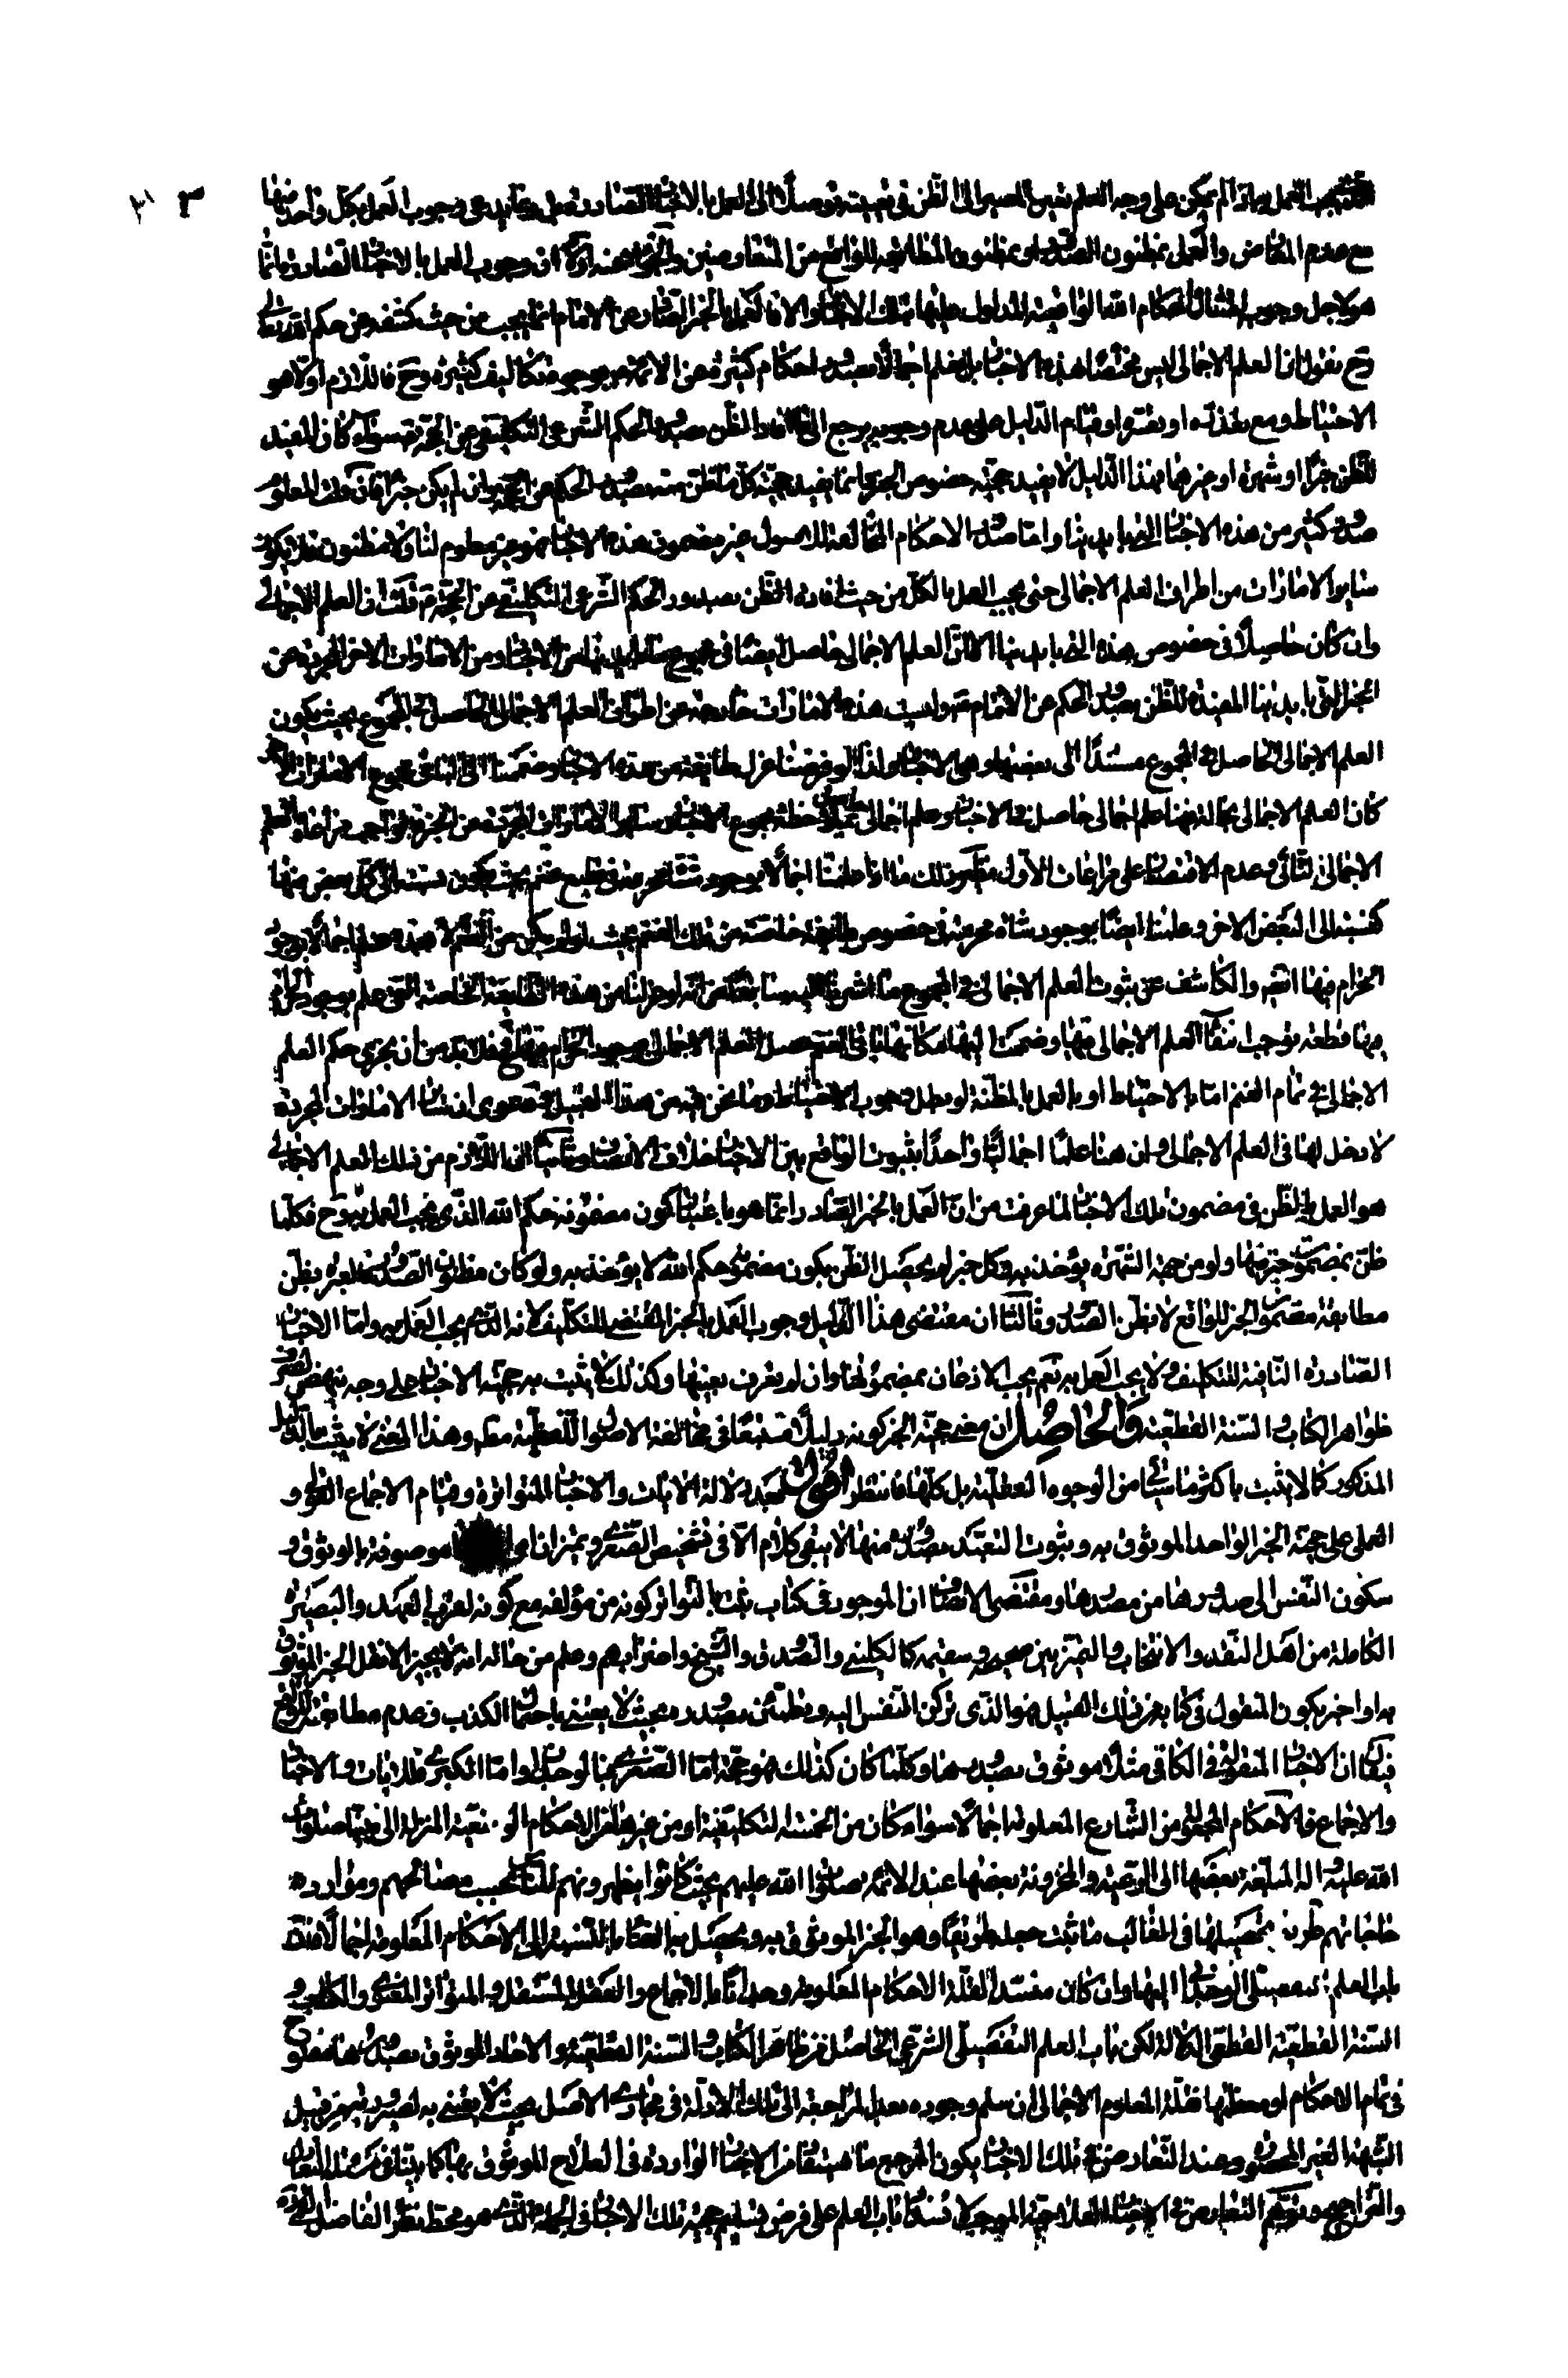 فيجب العمل به اذا لم يمكن على وجه العلم تعين المصير الى الظن فى تعيينه توصلا الى العمل بالاخبار الصادرة بل يدعى وجوب العمل بكل واحد منها
مع عدم المعارض والعمل بمظنون الصدور او بمظنون المطابقة للواقع من المتعارضين والجواب عنه اولا ان وجوب العمل بالاخبار الصادرة انما
هو لاجل وجوب امتثال احكام الله الواقعية المدلول عليها بتلك الاخبار فالعمل بالخبر الصادر عن الامام انما يجب من حيث كشفه عن حكم الله تعالى
وح نقول ان العلم الاجمالى ليس مختصا بهذه الاخبار بل نعلم اجمالا بصدور احكام كثيرة عن الائمة بوجود تكاليف كثيرة وح فاللازم اولا هو
الاحتياط ومع تعذره او تعسره او قيام الدليل على عدم وجوبه يرجع الى ما افاد الظن بصدور الحكم الشرعى التكليفى عن الحجة سواء كان المفيد
للظن خبرا او شهرة او غيرهما فهذا الدليل لا يفيد حجية خصوص الخبر وانما يفيد حجية كل ما ظن منه بصدور الحكم عن الحجة وان لم يكن خبرا فان قلت المعلوم
صدور كثير من هذه الاخبار التى بايدينا واما صدور الاحكام المخالفة للاصول غير مضمون هذه الاخبار فهو غير معلوم لنا ولا مظنون فلا يكون
ساير الامارات من اطراف العلم الاجمالى حتى يجب العمل بالكل من حيث افادة الظن بصدور الحكم الشرعى التكليفى عن الحجة قلت ان العلم الاجمالى
وان كان حاصلا فى خصوص هذه التى بايدينا الا ان العلم الاجمالى حاصل ايضا فى مجموع ما بايدينا من الاخبار ومن الامارات الاخر المجردة عن
الخبر التى بايدينا المفيدة للظن بصدور الحكم عن الامام ع وليست هذه الامارات خارجة عن اطراف العلم الاجمالى الحاصل فى المجموع بحيث يكون
العلم الاجمالى الحاصل فى المجموع مستندا الى بعضها وهى الاخبار ولذا لو فرضنا عزل طائفة من هذه الاخبار وضممنا الى الباقى مجموع الامارات الاخر
كان العلم الاجمالى بحاله فهنا علم اجمالى حاصل فى الاخبار وعلم اجمالى حاصل بملاحظة مجموع الاخبار وساير الامارات المجردة عن الخبر فالواجب مراعاة العلم
الاجمالى الثانى وعدم الاقتصار على مراعات الاول نظير ذلك ما اذا علمنا اجمالا بوجود شاة محرمة فى قطيع غنم بحيث يكون نسبته الى كل بعض منها
كنسبته الى البعض الاخر وعلمنا ايضا بوجود شاة محرمة فى خصوص طائفة خاصة من تلك الغنم بحيث لو لم يكن من الغنم الا هذه علم اجمالا بوجود
الحرام فيها ايضا والكاشف عن ثبوت العلم الاجمالى فى المجموع ما اشرنا اليه سابقا من انه لو عزلنا من هذه الطائفة الخاصة التى علم بوجود الحرام
فيها قطعة توجب انتفاء العلم الاجمالى فيها وضممنا اليها مكانها باقى الغنم حصل العلم الاجمالى بوجود الحرام فيها ايضا فلابد من ان يجرى حكم العلم
الاجمالى فى تمام الغنم اما بالاحتياط او بالعمل بالمظنة لو بطل وجوب الاحتياط وما نحن فيه من هذا القبيل ودعوى ان ساير الامارات المجردة
لا دخل لها فى العلم الاجمالى وان هنا علما اجماليا واحدا بثبوت الواقع بين الاخبار خلاف الانصاف وثانيا ان اللازم من ذلك العلم الاجمالى
هو العمل بالظن فى مضمون تلك الاخبار لما عرفت من ان العمل بالخبر الصادر انما هو باعتبار كون مضمونه حكم الله الذى يجب العمل به وح فكلما
ظن بمضمون خبر منها ولو من جهة الشهرة يؤخذ به وكل خبر لم يحصل الظن بكون مضمونه حكم الله لا يؤخذ به ولو كان مظنون الصدور فالعبرة بظن
مطابقة مضمون الخبر للواقع لا بظن الصدور وثالثا ان مقتضى هذا الدليل وجوب العمل بالخبر المقتضى للتكليف لانه الذى يجب العمل به واما الاخبار
الصادرة النافية للتكليف فلا يجب العمل بها نعم يجب الاذعان بمضمونها وان لم تعرف بعينها وكذلك لا يثبت به حجية الاخبار على وجه ينهض لصرف
ظواهر الكتاب والسنة القطعية والحاصل ان معنى حجية الخبر كونه دليلا متبعا فى مخالفة الاصول اللفظية مطلقا وهذا المعنى لا يثبت بالدليل
المذكور كما لا يثبت باكثر ما سيأتى من الوجوه العقلية بل كلها فانتظر اقول بعد دلالة الايات والاخبار المتواترة وقيام الاجماع القولى و
العملى على حجية الخبر الواحد الموثوق به وثبوت التعبد بصدور منها لا يبقى كلام الا فى تشخيص الصغرى وتميز ان موصوفة بالوثوق و
سكون النفس الى صدورها من مصدرها ومقتضى الانصاف ان الموجود فى كتاب ثبت بالتواتر كونه من مؤلفه مع كونه والبصيرة
الكاملة من اهل النقد والانتخاب والتميز بين صحيحه وسقيمه كالكلينى والصدوق والشيخ واضرابهم وعلم من حاله انه لا يجيز الا نقل الخبر الموثوق
به او اخبر بكون المنقول فى كتابه من ذلك القبيل هو الذى تركن النفس اليه وتطمئن بصدوره بحيث لا يعتنى باحتمال الكذب وعدم مطابقته للواقع
فيقال ان الاخبار المنقولة فى الكافى مثلا موثوق بصدورها وكلما كان كذلك فهو حجة اما الصغرى فبالوجدان واما الكبرى فللايات والاخبار
والاجماع فالاحكام المجعولة من الشارع المعلومة اجمالا سواء كان من الخمسة التكليفية او من غيرها من الاحكام الوضعية المنزلة الى نبينا صلوات
الله عليه واله المبلغة بعضها الى الرعية والمخزونة بعضها عند الائمة صلوات الله عليهم بحيث كانوا يظهرونهم للناس بحسب مصالحهم وموارد
حاجاتهم طريق تحصيلها فى الغالب ما ثبت جعله طريقا وهو الخبر الموثوق به ويحصل به العلم بالنسبة الى الاحكام المعلومة اجمالا فان
باب العلم التفصيلى الوجدانى اليها وان كان منسدا لقلة الاحكام المعلومة وجدانا بالاجماع والعقل المستقل والمتواتر المعنوى والكتاب و
السنة القطعية القطعى الدلالة لكن باب العلم التفصيلى الشرعى الحاصل من ظاهر الكتاب والسنة القطعية والاحاد الموثوق بصدورها مفتوح
فى تمام الاحكام او معظمها فقلة المعلوم الاجمالى ان سلم وجوده بعد المراجعة الى تلك الادلة فى مجارى الاصل بحيث لا يعتنى به لصيرورتها من قبيل
الشبهة الغير المحصورة وعند التعارض فى تلك الاخبار يكون المرجع ما هو المستفاد من الاخبار الواردة فى العلاج الموثوق بها كما ياتى فى مسئلة التعادل
والتراجيح وتوهم التعارض فى الاخبار العلاجية الموجب لانسداد باب العلم على فرض تسليم حجية تلك الاخبار فى الجملة الذى هو محط نظر الفاضل